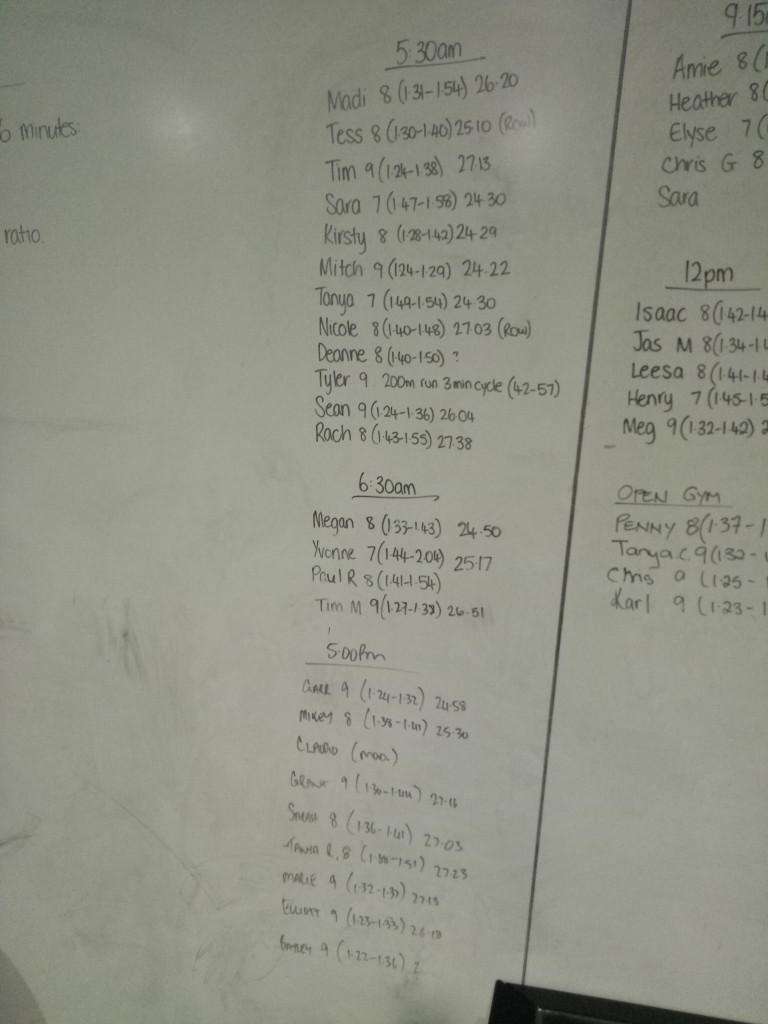 6 minutes:
ratio.
5:30am
Madi 8 (1.31-1.54) 26.20
Tess 8 (1.30-1.40) 25.10 (Row)
Tim 9 (1.24-1.38) 27.13
Sara 7 (1.47-1.58) 24.30
Kirsty 8 (1.28-1.42) 24.29
Mitch 9 (1.24-1.29) 24.22
Tanya 7 (1.49-1.54) 24.30
Nicole 8 (1.40-1.48) 27.03 (Row)
Deanne 8 (1.40-1.50) ?
Tyler 9 200m run 3min cycle (42-57)
Sean 9 (1.24-1.36) 26.04
Rach 8 (1.43-1.55) 27.38
6:30am
Megan 8 (1.33-1.43) 24.50
Yvonne 7 (1.44-2.04) 25.17
Paul R 8 (1.41-1.54)
Tim M 9 (1.27-1.38) 26.51
5:00pm
9 (1.24-1.32) 24.58
MIKEY 8 (1.38-1.41) 25.30
CLAUDIO
GRANT 9 27.16
8 (1.36-1.41) 27.03
TANYA R. 8 27.23
MARIE 9 27.15
ELLIOTT 9 (1.23-1.33) 26.18
9 (1.22-1.36) ?
9.15
Amie 8 (1
Heather 8 (
Elyse 7 (
Chris G 8
Sara
12pm
Isaac 8 (1.42-1.4
Jas M 8 (1.34-1.
Leesa 8 (1.41-1.4
Henry 7 (1.45-1.5
Meg 9 (1.32-1.42) 2
OPEN GYM
PENNY 8 (1.37-1
Tanya C. 9 (1.32-
Chris 9 (1.25-
Karl 9 (1.23-1